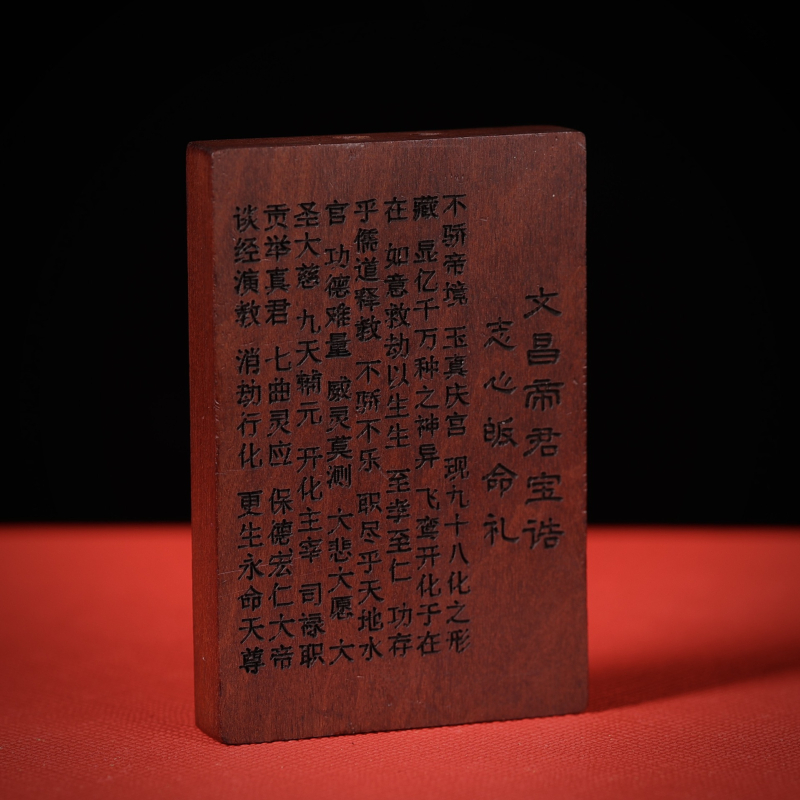 文昌帝君宝诰
志心皈命礼
不骄帝境 玉真庆宫 现九十八化之形
藏 显亿千万种之神异 飞鸾开化于在
在 如意救劫以生生 至孝至仁 功存
乎儒道释教 不骄不乐 职尽乎天地水
官 功德难量 威灵莫测 大悲大愿 大
圣大慈 九天辅元 开化主宰 司禄职
贡举真君 七曲灵应 保德宏仁大帝
谈经演教 消劫行化 更生永命天尊